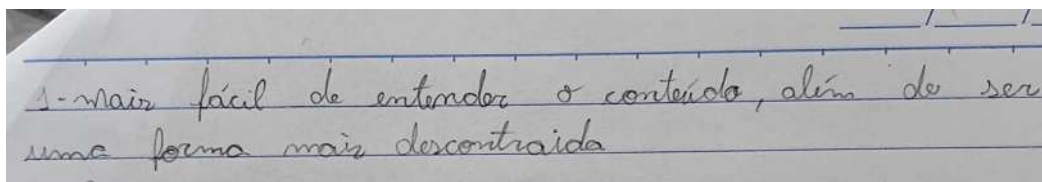 1-mais fácil de entender o conteúdo, além de ser
uma forma mais descontraida